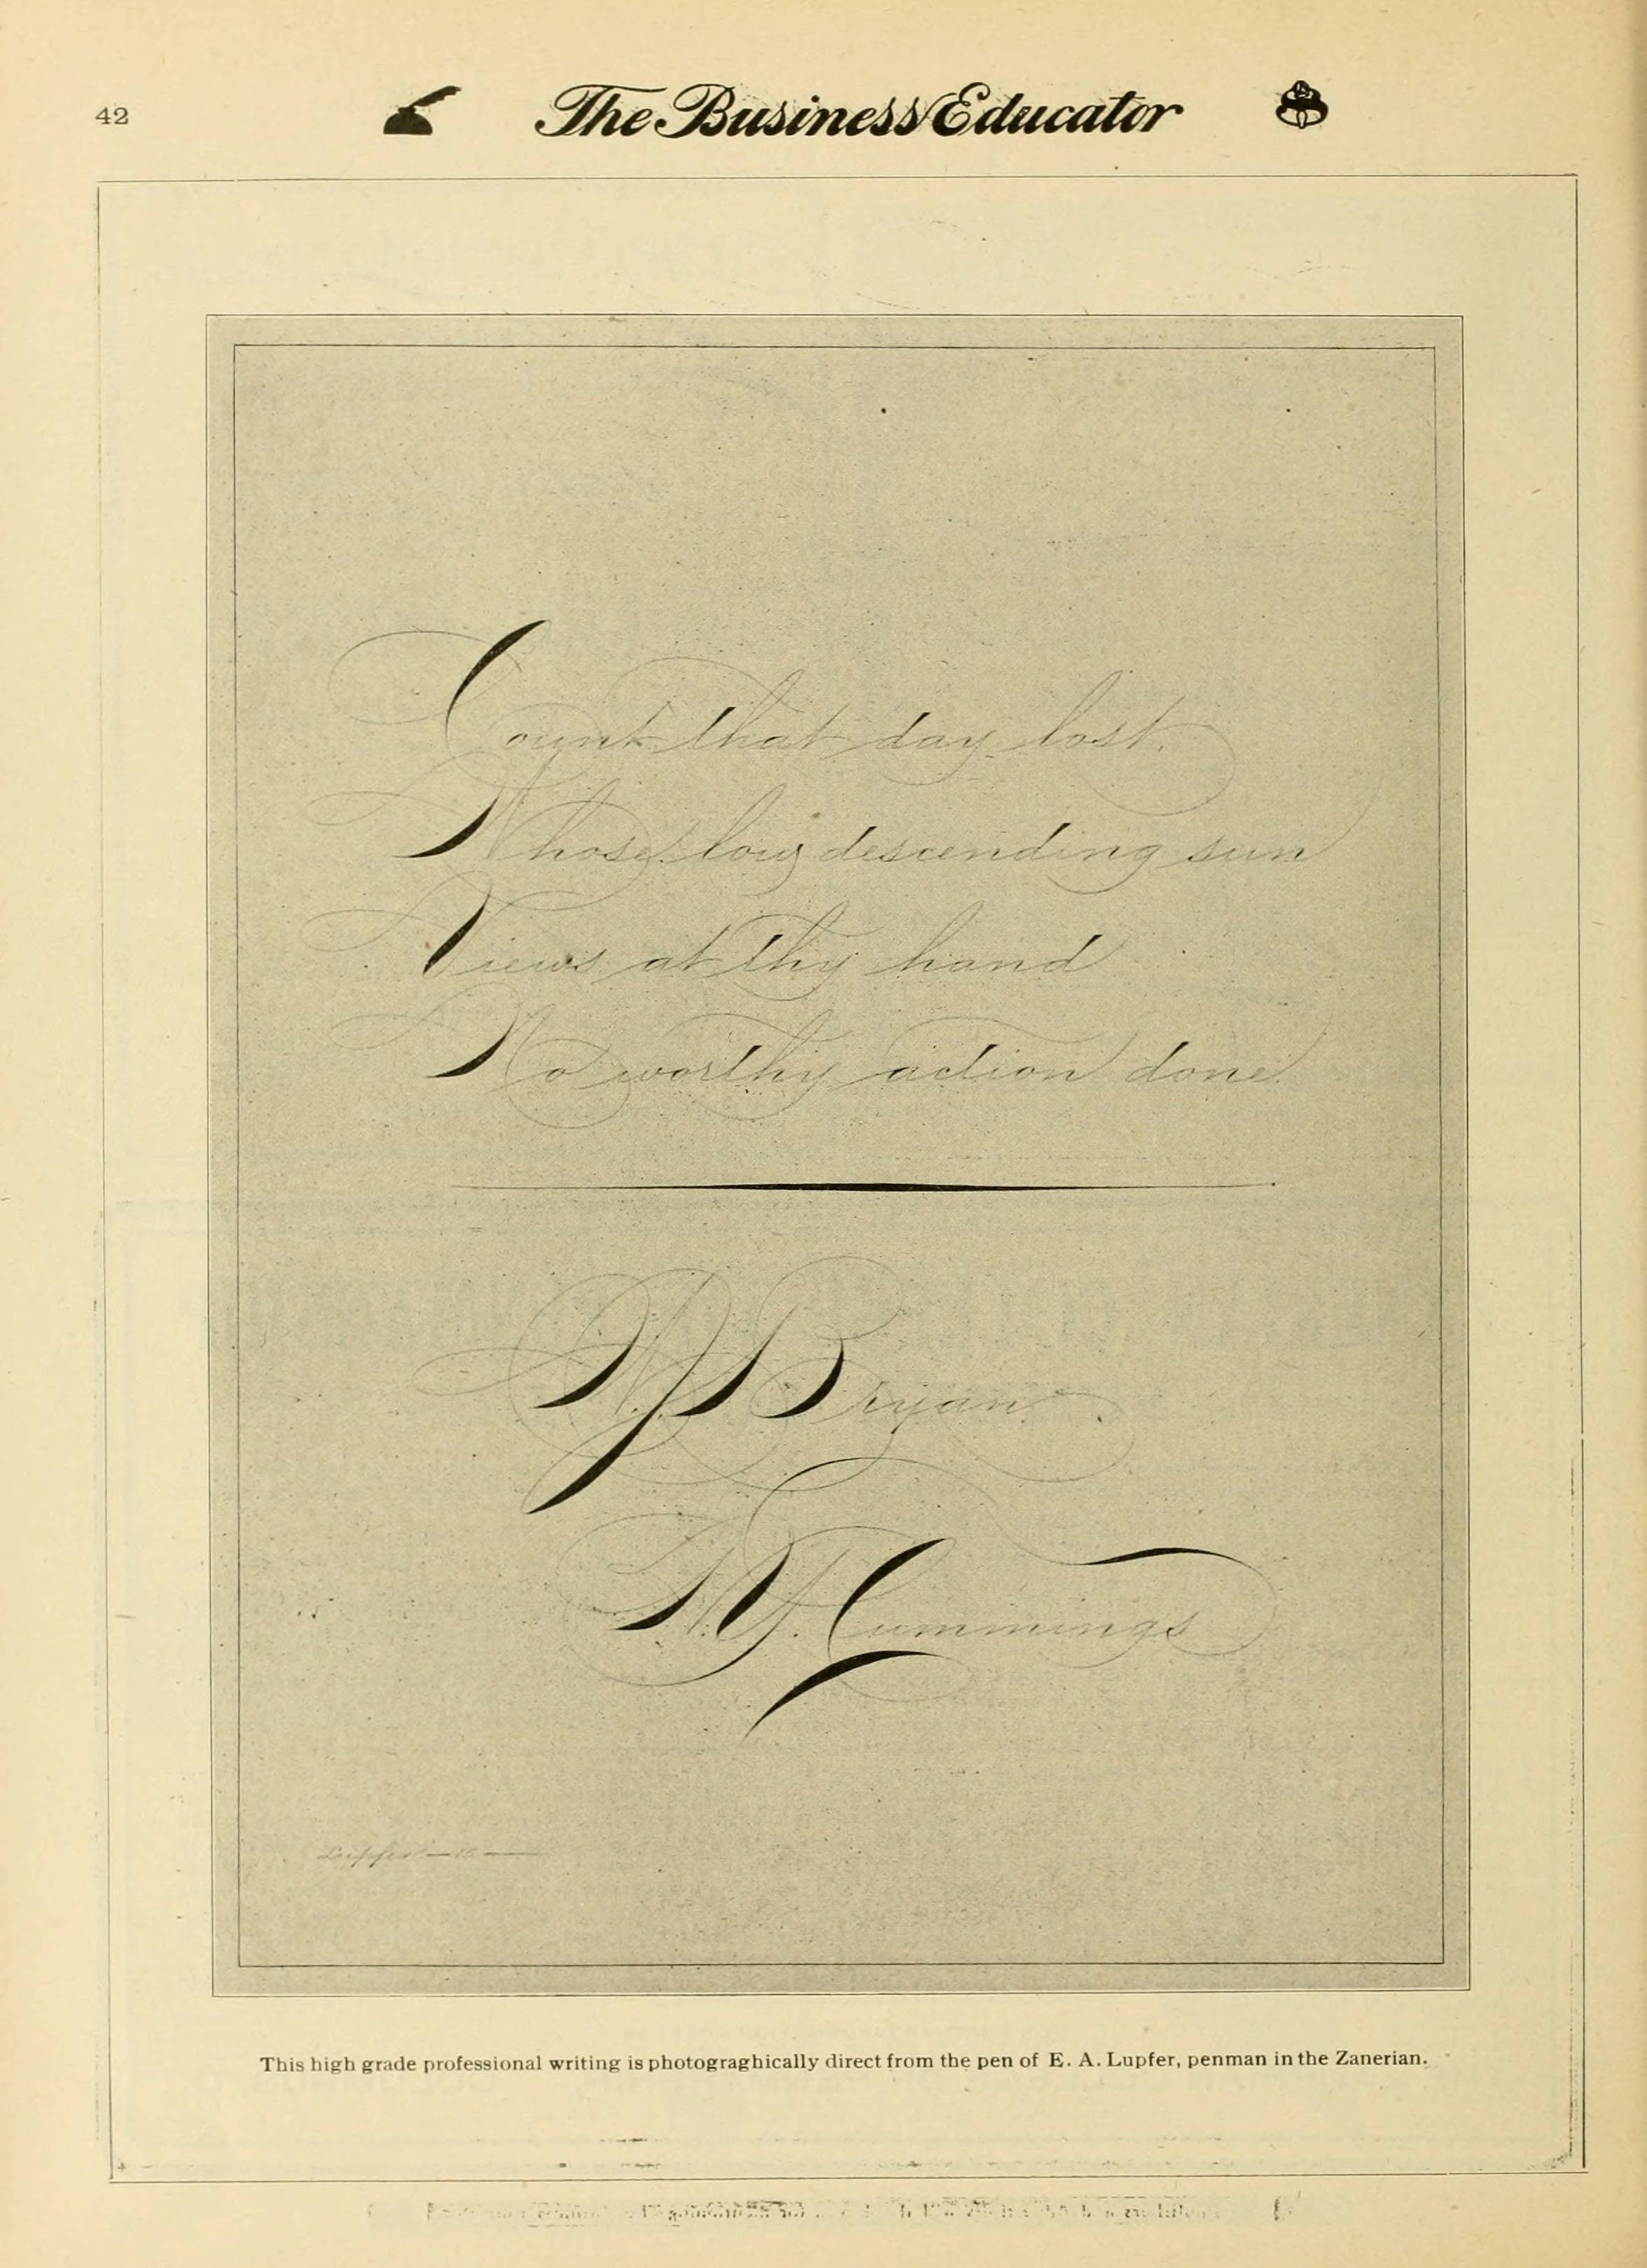 42
The Business Educator
Count that day lost,
Whose low descending sun
Views at thy hand
No worthy action done.
W J Bryan
W. J. Cummings
Lupfer
This high grade professional writing is photograghically direct from the pen of E. A. Lupfer, penman in the Zanerian.